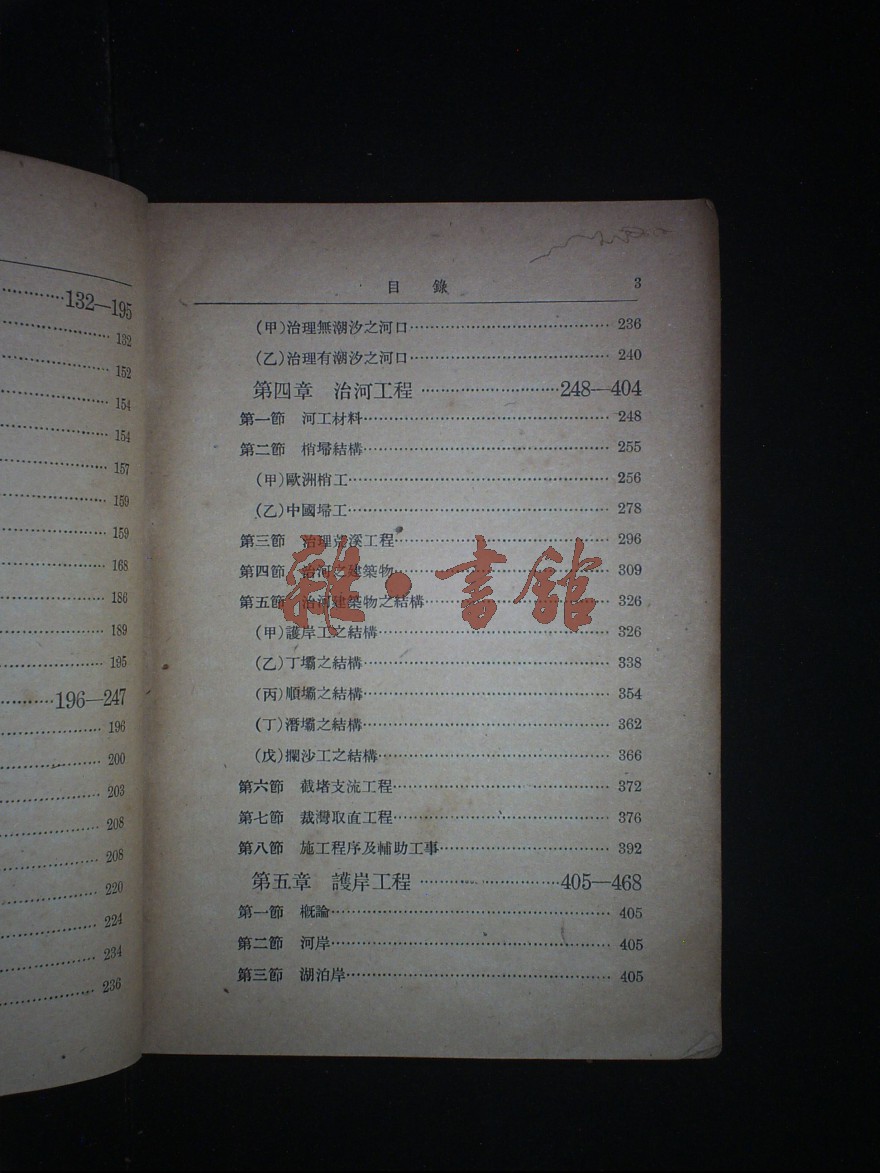 132—195
132
152
154
154
157
159
159
168
186
189
195
196—247
196
200
203
208
208
220
224
234
236
目錄 3
(甲)治理無潮汐之河口 236
(乙)治理有潮汐之河口 240
第四章 治河工程 248—404
第一節 河工材料 248
第二節 梢埽結構 255
(甲)歐洲梢工 256
(乙)中國埽工 278
第三節 治理荒溪工程 296
第四節 治河之建築物 309
第五節 治河建築物之結構 326
(甲)護岸工之結構 326
(乙)丁壩之結構 338
(丙)順壩之結構 354
(丁)潛壩之結構 362
(戊)攔沙工之結構 366
第六節 截堵支流工程 372
第七節 裁灣取直工程 376
第八節 施工程序及輔助工事 392
第五章 護岸工程 405—468
第一節 概論 405
第二節 河岸 405
第三節 湖泊岸 405
雜·書館